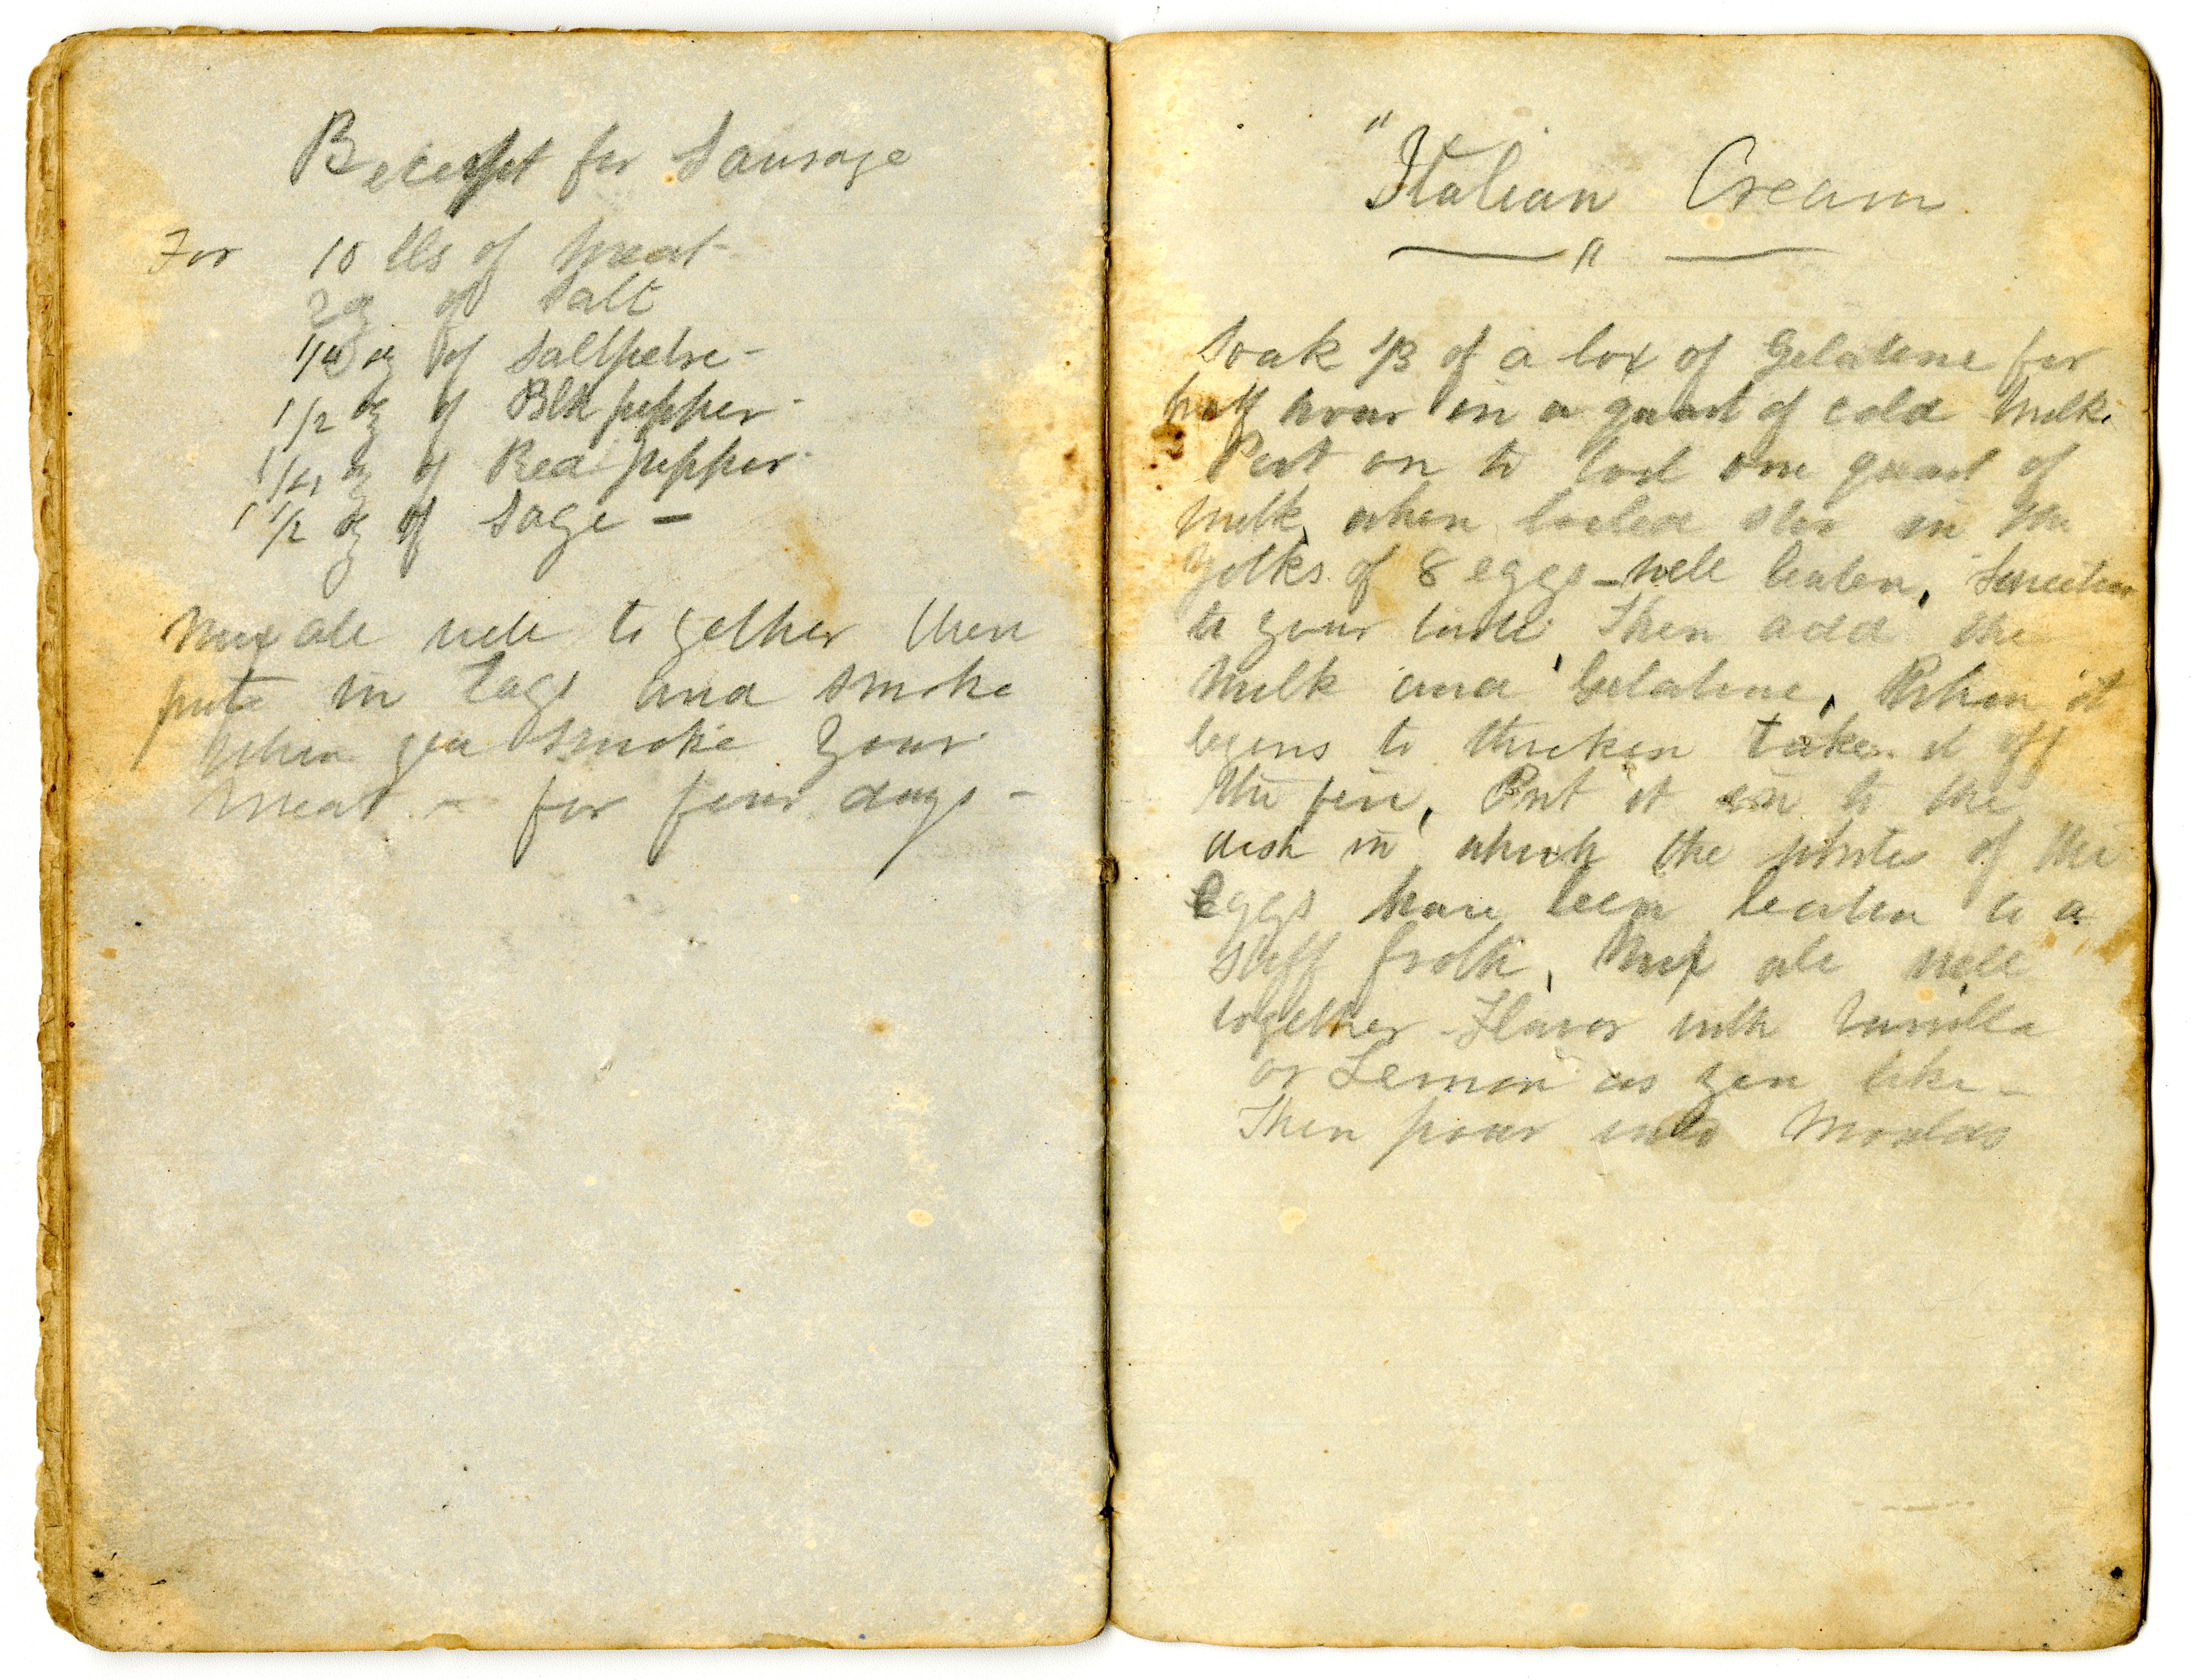 Receipt for Sausage
For 10 lbs of Meat -
3 oz of Salt
oz of Saltpetre -
1/2 oz of Blk pepper -
1/4 oz of Red pepper -
1 1/2 oz of Sage -
Mix all well to gether then
put in bags and smoke
when you smoke your
meat - for four days -
"Italian Cream
"
Soak 1/3 of a box of Gelatine for
half hour in a quart of cold Milk.
Put on to boil one quart of
Milk, when boiled stir in the
yolks of 8 eggs - well beaten, Sweeten
to your taste, Then add the
Milk and Gelatine, When it
begins to thicken take it off
the fire, Put it in to the
dish in which the whites of the
Eggs have been beaten to a
stiff froth, Mix all well
together - Flavor with Vanilla
or Lemon as you like -
Then pour into Moulds